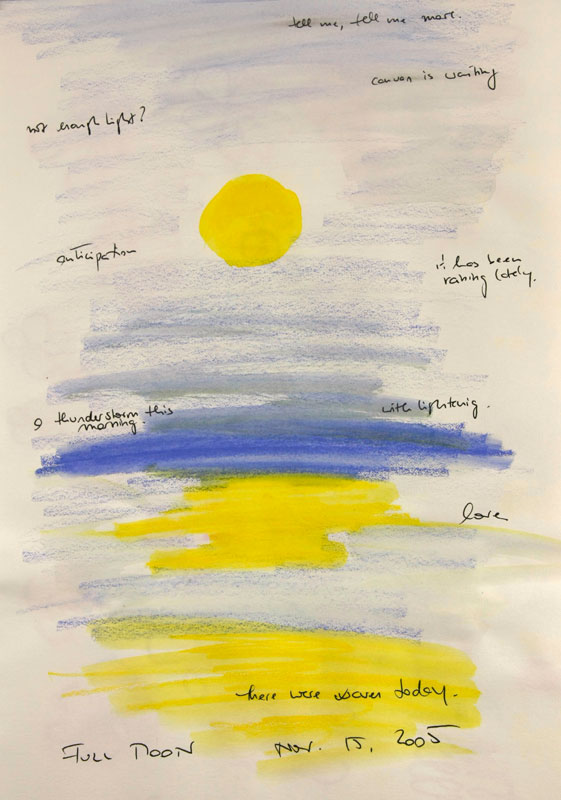 tell me, tell me more.
canvas is waiting
not enough light?
anticipation
it has been
raining lately.
a thunderstorm this
morning.
with lightning.
love
there were waves today.
FULL MOON
NOV. 15, 2005